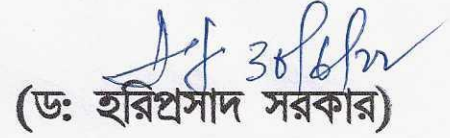 30/6/22
(ড: হরিপ্রসাদ সরকার)